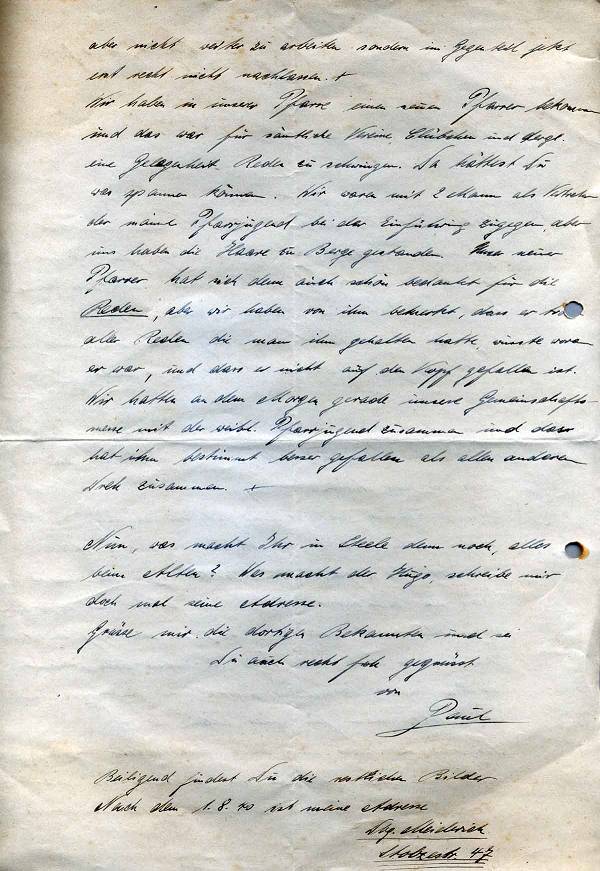 aber nicht weiter zu arbeiten sondern im Gegenteil jetzt
erst recht nicht nachlassen. +
Wir haben in unserer Pfarre einen neuen Pfarrer bekommen
und das war für sämtliche Vereine, Clübchen und dergl.
eine Gelegenheit Reden zu schwingen. Da hättest Du
was spannen können. Wir waren mit 2 Mann als Vertreter
der männl. Pfarrjugend bei der Einführung zugegen, aber
uns haben die Haare zu Berge gestanden. Unser neuer
Pfarrer hat sich dann auch schön bedankt für die
Reden, aber wir haben von ihm bemerkt, dass er trotz
aller Reden die man ihm gehalten hatte, wusste woran
er war, und dass er nicht auf den Kopf gefallen ist.
Wir hatten an dem Morgen gerade unsere Gemeinschafts-
messe mit der weibl. Pfarrjugend zusammen und das
hat ihm bestimmt besser gefallen als allen anderen
Dreck zusammen. +
Nun, was macht Ihr in Steele denn noch, alles
beim Alten? Was macht der Hugo, schreibe mir
doch mal seine Adresse.
Grüße mir die dortigen Bekannten und sei
Du auch recht froh gegrüsst
von
Paul
Beiligend findest Du die restlichen Bilder
Nach dem 1.8.40 ist meine Adresse
Dbg. Meiderich
Stolzestr. 47